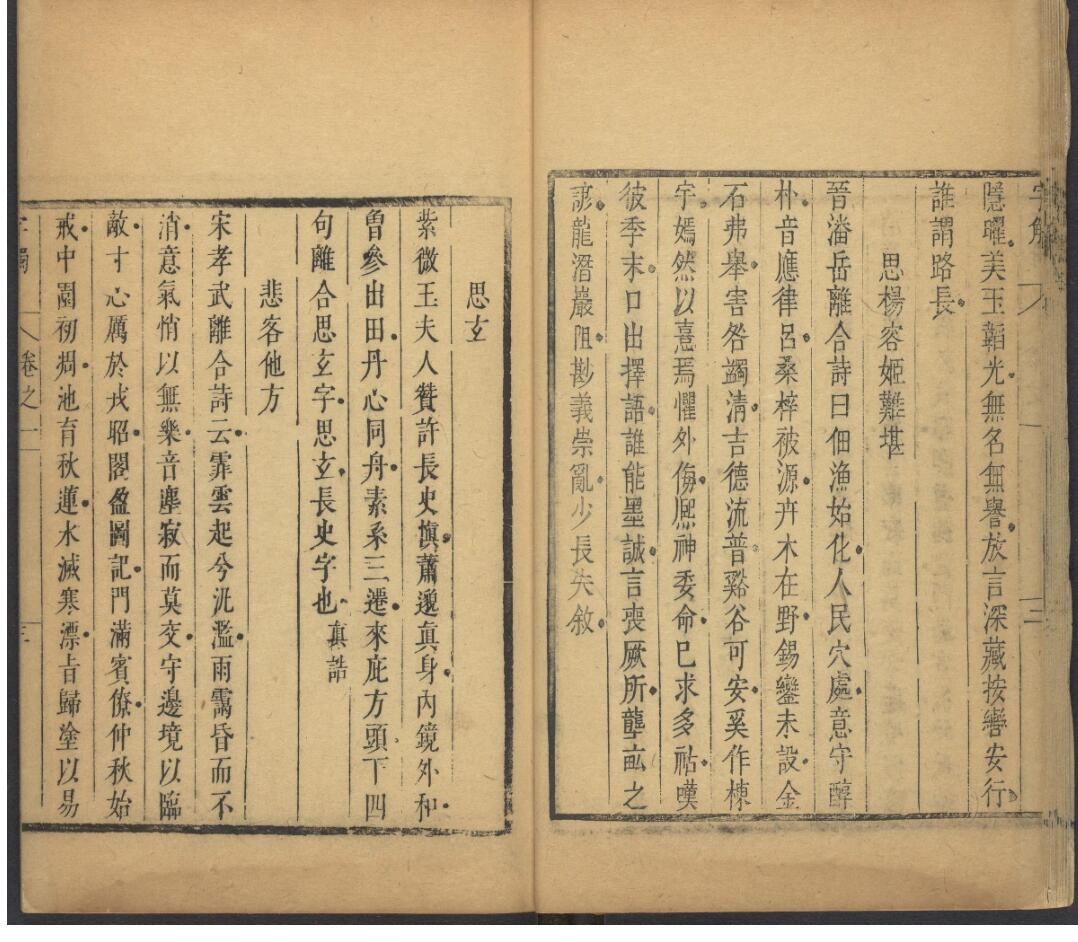 隱曜美玉韜光無名無譽放言深藏按轡安行
誰謂路長
思楊容姬難堪
晉潘岳離合詩曰佃漁始化人民穴處意守醇
朴音應律呂桑梓被源卉木在野錫鑾未設金
石弗舉害咎蠲淸吉德流普谿谷可安奚作棟
宇嫣然以憙焉懼外侮熈神委命已求多祜嘆
彼季末口出擇語誰能墨誠言喪厥所壟畝之
諺龍潛巖阻尠義崇亂少長失敘
思玄
紫微王夫人贊許長史愼蕭邈眞身內鏡外和
曾參出田丹心同舟素系三遷來庇方頭下四
句離合思玄字思玄長史字也 眞誥
悲客他方
宋孝武離合詩云霏雲起兮汎濫雨靄昏而不
消意氣悄以無樂音塵寂而莫交守邊境以臨
敵寸心厲於戎昭閣盈圖記門滿賓僚仲秋始
戒中園初凋池育秋蓮水滅寒漂旨歸塗以易
卷之一
三